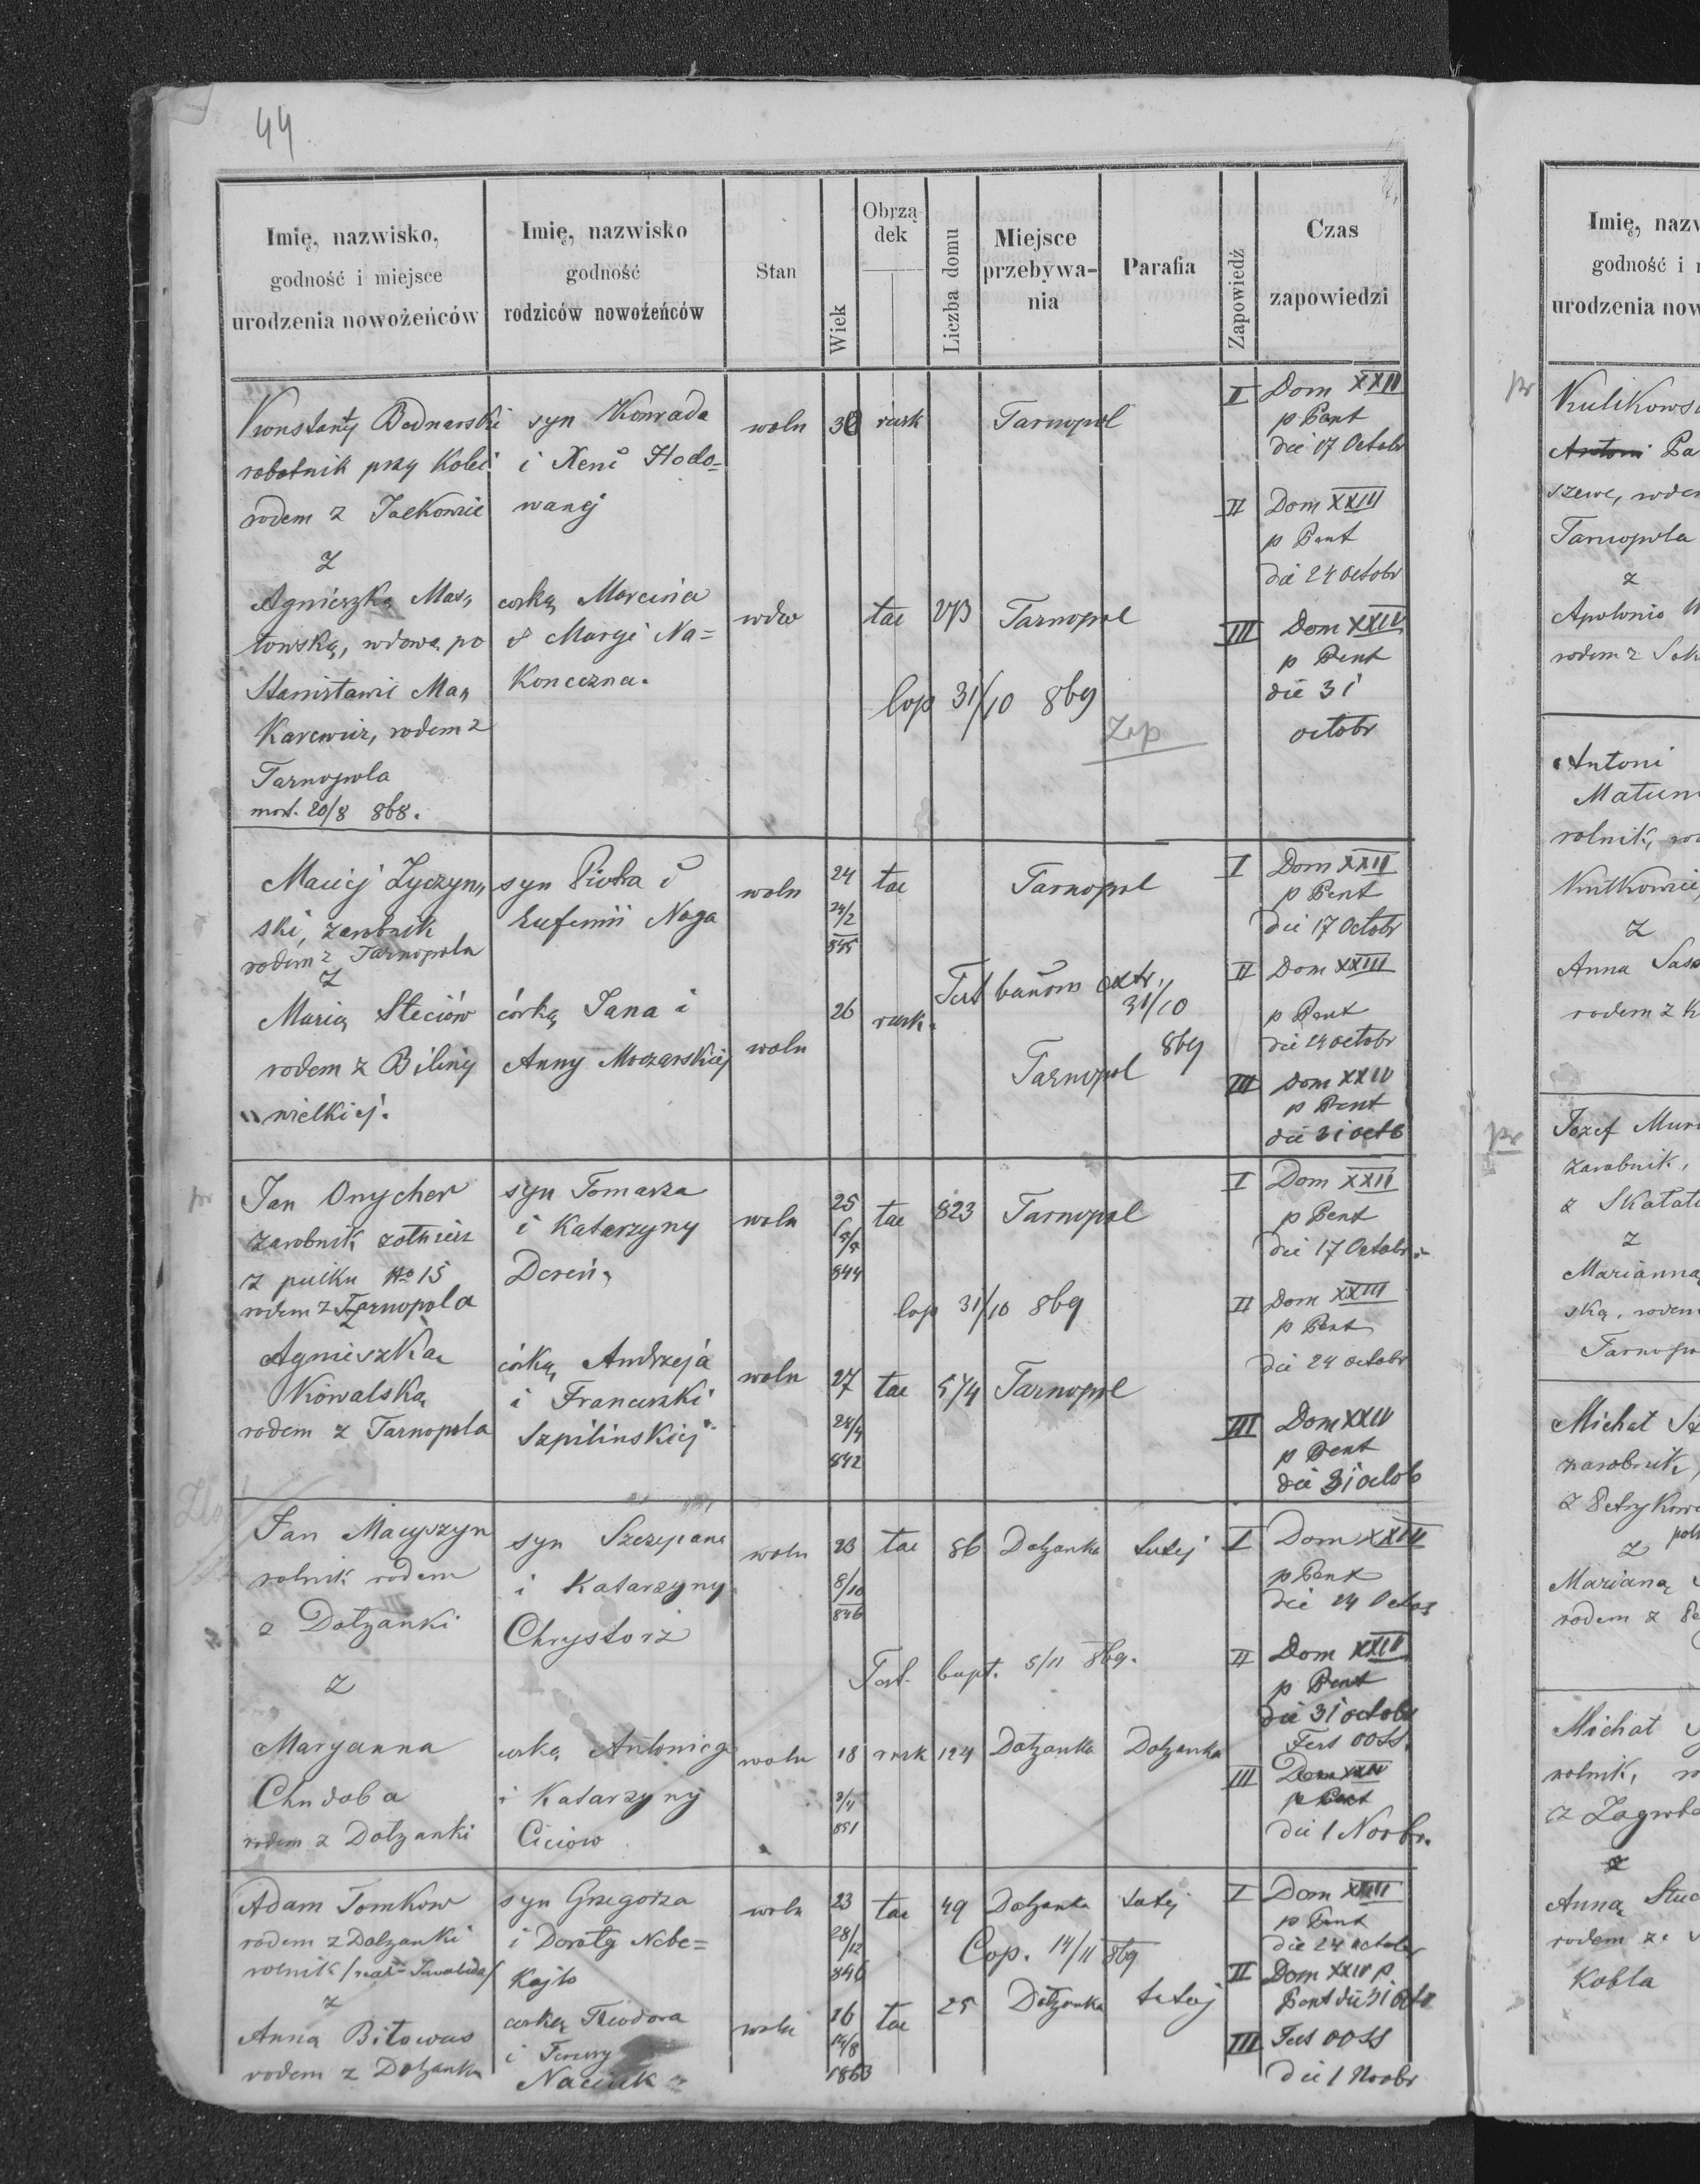 44
Imię, nazwisko,
godność i miejsce
urodzenia nowożeńców
Imię, nazwisko
godność
rodziców nowożeńców
Stan
Wiek
Obrzą
dek
Liczba domu
Miejsce
przebywa-
nia
Parafia
Zapowiedź
Czas
zapowiedzi
Konstanty Bednarski
robotnik przy Kolei
rodem z Jackowic
z
Agnieszką Mas„
łowską, wdową po
Stanisławie Ma„
Karewicz, rodem z
Tarnopola
mort. 20/8 868.
syn Konrada
i Xeni Hodo=
wanej
corką Marcina
i Maryi Na=
Koneczna.
woln
wdw
30
rusk
Tarnopol
tac
Tarnopol
Cop 31/10 869
Zap
I Dom XXII
p Pent
die 17 Octobr
II Dom XXIII
p Pent
die 24 octobr
III Dom XXIV
p Pent
die 31
octobr
Maciej Łyczyn„
ski, zarobnik
rodem z Tarnopola
z
Marią Steciów
rodem z Biliny
wielkiej.
syn Piotra i
Eufemii Noga
córką Jana i
Anny Moczarskiej
woln
woln
24
24/2
845
26
tac
rusk.
Tarnopol
Test bannor extr.
31/10
869
Tarnopol
I Dom XXII
p Pent
die 17 Octobr
II Dom XXIII
p Pent
die 24 octobr
III Dom XXIV
p Pent
die 31 octb
pr
Jan Onycher
zarobnik żołnierz
z pułku No 15
rodem z Tarnopola
z
Agnieszka
Kowalska
rodem z Tarnopola
syn Tomasza
i Katarzyny
Dereń.
córką Andrzeja
i Franciszki
Szpilinskiej
woln
woln
25
844
27
24/4
842
tac 823 Tarnopol
Cop 31/10 869
tac 574 Tarnopol
I Dom XXII
p Pent
die 17 Octobr
II Dom XXIII
p Pent
die 24 octobr
III Dom XXIV
p Pent
die 31 octob
Jan Macyszyn
rolnik rodem
z Dołżanki
z
Maryanna
Chudoba
rodem z Dołżanki
syn Szczepana
i Katarzyny
Chrystorz
corką Antoniego
i Katarzyny
Ciciow
woln
woln
23
8/10
846
18
2/4
851
tac 86 Dołżanka tutej
Test. bapt. 5/11 869.
rusk 124 Dołżanka Dołżanka
I Dom XXIII
p Pent
die 24 Octob
II Dom XXIV
p Pent
die 31 octobr
Fest OOSS.
III Dom XXIV
p Pent
die 1 Novbr.
Adam Tomkow
rodem z Dołżanki
rolnik
z
Anną Biłowus
rodem z Dołżanka
syn Grzegorza
i Doroty Nebe=
Kajło
corką Theodora
i Teresy
Naciuk
woln
woln
23
28/12
846
16
14/8
1853
tac 49 Dołżanka tutej
Cop. 14/11 869
tac 25 Dołżanka tutej
I Dom XXIII
p Pent
die 24 octobr
II Dom XXIV p
Pent die 31 octb
III Fest OOSS
die 1 Novbr
Imię, nazw
godność i
urodzenia now
pr
Kulikows
Antoni Pa
szewc, rodem
Tarnopola
z
Apolonio
rodem z
Antoni
Matum
rolnik,
Kutkowic
z
Anna
rodem z
pr
Jozef
zarobnik,
z Skałat
z
Marianna
ską, rodem
Tarnopo
Michał
zarobnik,
z Petryków
z
Marianą
rodem z
Michał
rolnik,
z Zagrobe
z
Anną
rodem ze
Kobla